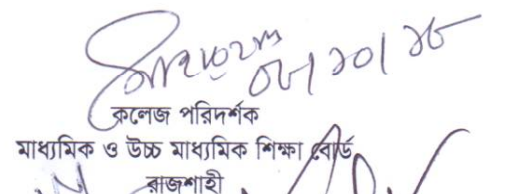 ০৮/১০/১৮
কলেজ পরিদর্শক
মাধ্যমিক ও উচ্চ মাধ্যমিক শিক্ষা বোর্ড
রাজশাহী